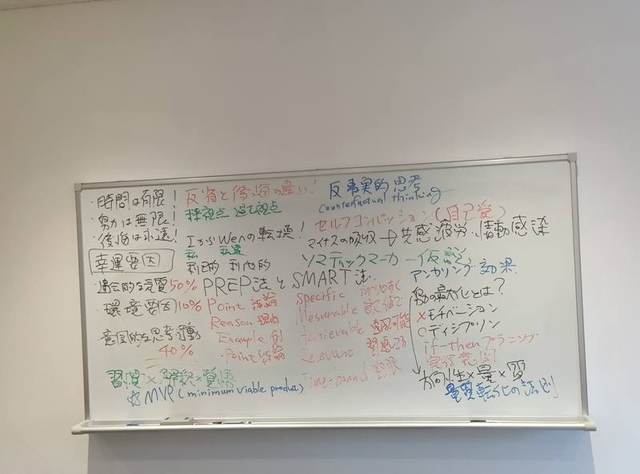 ・時間は有限!
・努力は無限!
・後悔は永遠!
幸運要因
・遺伝的な気質50%
・環境要因10%
意図的な思考 行動
40%
習慣×解釈×質
☆MVP (minimum viable product)
反省と後悔の違い!
IからWeへの転換!
利己的 利他的
PREP法とSMART法
Point 結論
Reason 理由
Example 例
Point 結論
Specific
Measurable 数値
Achievable 達成可能
Time-bound 期限
反事実的思考
Counterfactual thinking
セルフコンパッション(自己愛)
マイナスの吸収→共感疲労、情動感染
ソマティックマーカー仮説
アンカリング効果
の最大化とは?
×モチベーション
○ディシプリン
if-thenプランニング
方向性×量×質
量質転化の法則